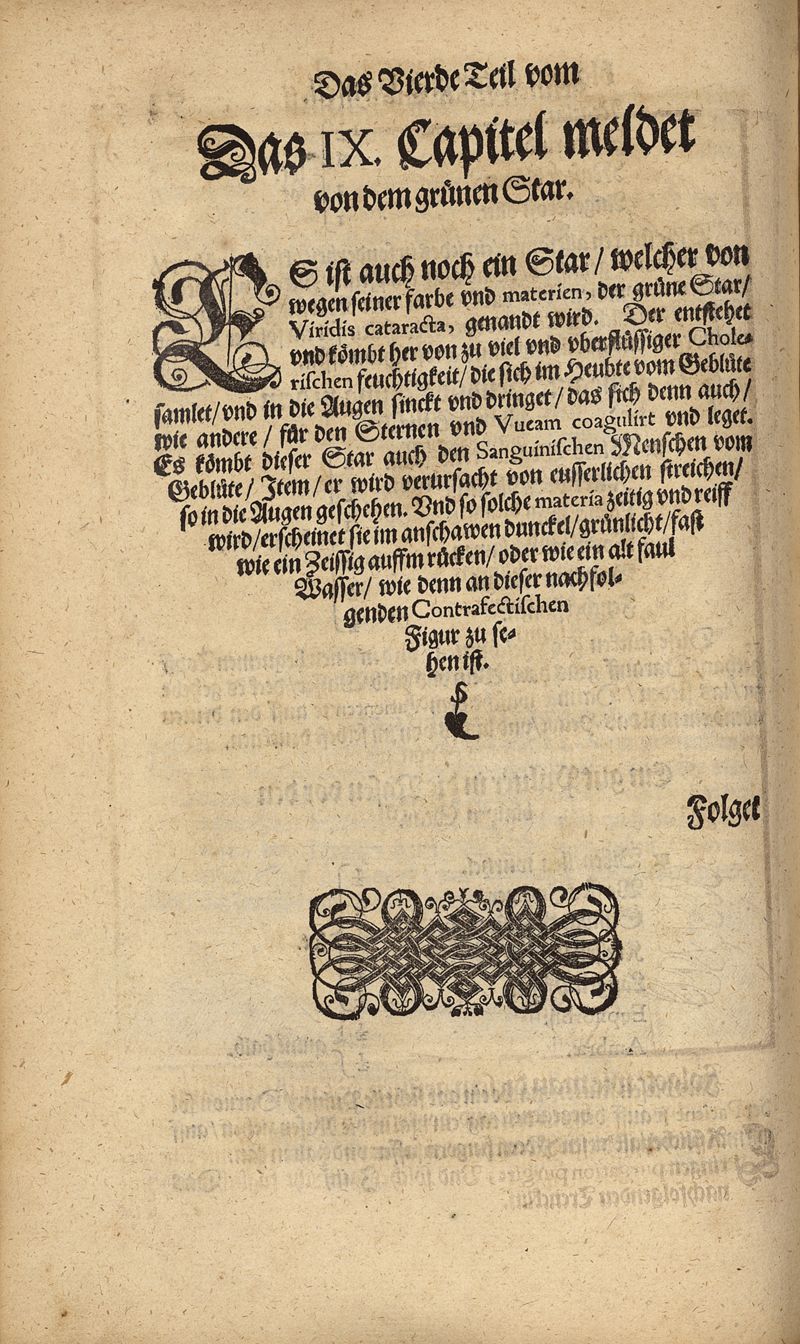 Das Vierde Teil vom
Das IX. Capitel meldet
von dem grünen Star.
ES ist auch noch ein Star / welcher von
wegen seiner farbe vnd materien, der grüne Star /
Viridis cataracta, genandt wird. Der entstehet
vnd kömbt her von zu viel vnd vberflüssiger Chole-
rischen feuchtigkeit / die sich im Heubte vom Geblüte
samlet / vnd in die Augen sinckt vnd dringet / das sich denn auch /
wie andere / für den Sternen vnd Vueam coagulirt vnd leget.
Es kömbt dieser Star auch den Sanguinischen Menschen vom
Geblüte / Item / er wird verursacht von eusserlichen streichen /
so in die Augen geschehen. Vnd so solche materia zeitig vnd reiff
wird / erscheinet sie im anschawen dunckel / grünlicht / fast
wie ein Zeissig auffm rücken / oder wie ein alt faul
Wasser / wie denn an dieser nachfol-
genden Contrafectischen
Figur zu se-
hen ist.
Folget